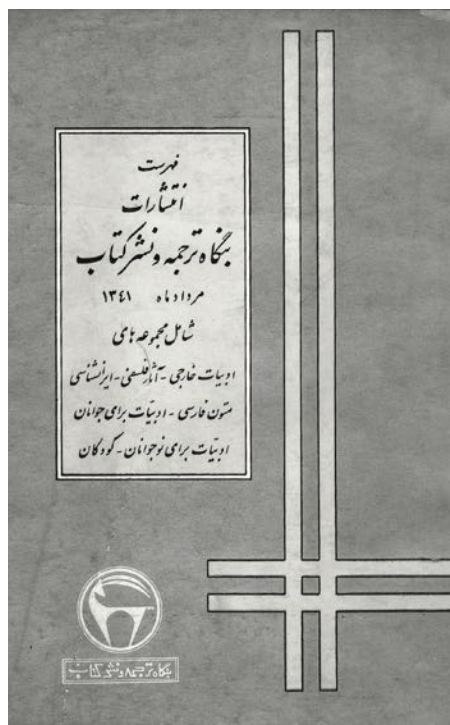 فهرست
انتشارات
بنگاه ترجمه و نشر کتاب
مرداد ماه ۱۳٤۱
شامل مجموعه های
ادبیات خارجی - آثار فلسفی - ایرانشناسی
متون فارسی - ادبیّات برای جوانان
ادبیّات برای نوجوانان - کودکان
بنگاه ترجمه و نشر کتاب